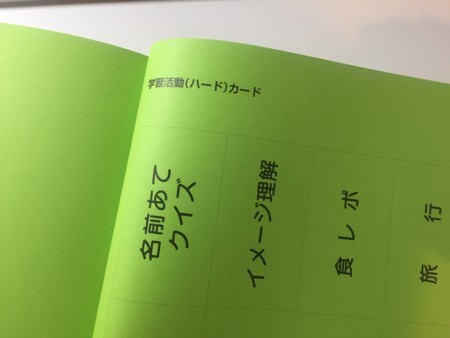 学習活動(ハード)カード
名前あて
クイズ
イメージ理解
食レポ
旅行